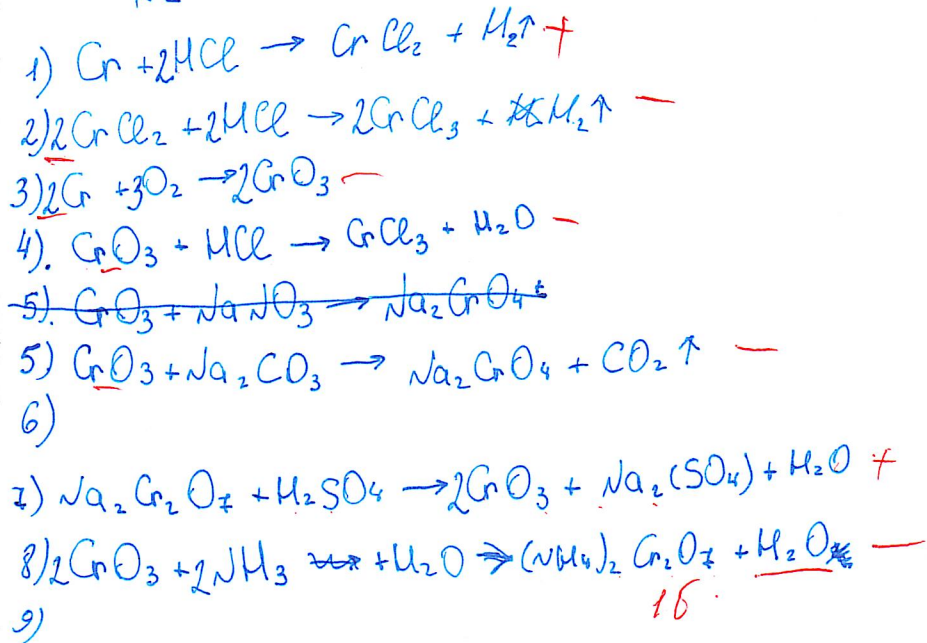 1) Cr + 2HCl → CrCl₂ + H₂↑ +
2) 2CrCl₂ + 2HCl → 2CrCl₃ + H₂↑ −
3) 2Cr + 3O₂ → 2CrO₃ −
4). CrO₃ + HCl → CrCl₃ + H₂O −
5). CrO₃ + NaNO₃ → Na₂CrO₄ +
5) CrO₃ + Na₂CO₃ → Na₂CrO₄ + CO₂↑ −
6)
7) Na₂Cr₂O₇ + H₂SO₄ → 2CrO₃ + Na₂(SO₄) + H₂O +
8) 2CrO₃ + 2NH₃ + H₂O → (NH₄)₂Cr₂O₇ + H₂O −
1б.
9)